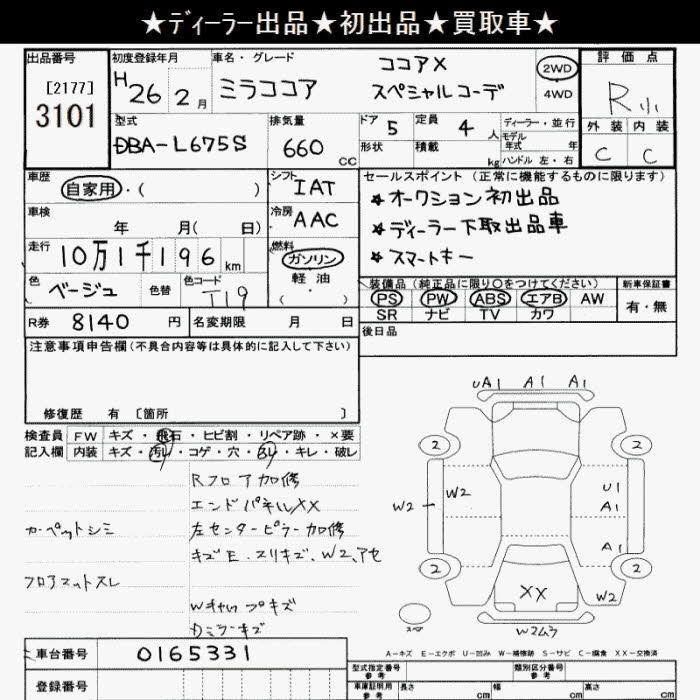 ★ディーラー出品★初出品★買取車★
出品番号 初度登録年月 車名・グレード 評価点
[2177] 3101
H26 2月
ミラココア ココアX スペシャルコーデ
2WD 4WD
R 外装 内装
C C
型式 DBA-L675S
排気量 660 CC
ドア 5 形状
定員 4 人 積載 kg
ディーラー・並行
モデル年式 年
ハンドル 左・右
車歴 自家用・( )
シフト IAT
車検 年 月( 日)
冷房 AAC
走行 10万1千196 km
燃料 ガソリン 軽油 ( ・ )
色 ベージュ 色替 色コード T19
R券 8140 円 名変期限 月 日
セールスポイント(正常に機能するものに限ります)
★オークション初出品
★ディーラー下取出品車
★スマートキー
装備品(純正品に限り○をつけてください) 新車保証書
PS PW ABS エアB AW 有・無
SR ナビ TV カワ
後日品
注意事項申告欄(不具合内容等は具体的に記入して下さい)
修復歴 有 〔箇所 〕
検査員 FW キズ・飛石・ヒビ割・リペア跡・×要
記入欄 内装 キズ・汚レ・コゲ・穴・スレ・キレ・破レ
Rフロア加修
エンドパネルXX
カーペットシミ 左センターピラー加修
キズE、スリキズ、W2、アセ
フロアマットスレ
Wキャップキズ
Dミラーキズ
UA1 A1 A1
2 2
W2 W2 U1
A1
A1
2 2
XX W2
スペア W2ムラ
A-キズ E-エクボ U-凹み W-補修跡 S-サビ C-腐食 XX-交換済
車台番号 0165331
登録番号
型式指定番号 参考 類別区分番号 参考
車庫証明用 参考 長さ cm 幅 cm 高さ cm